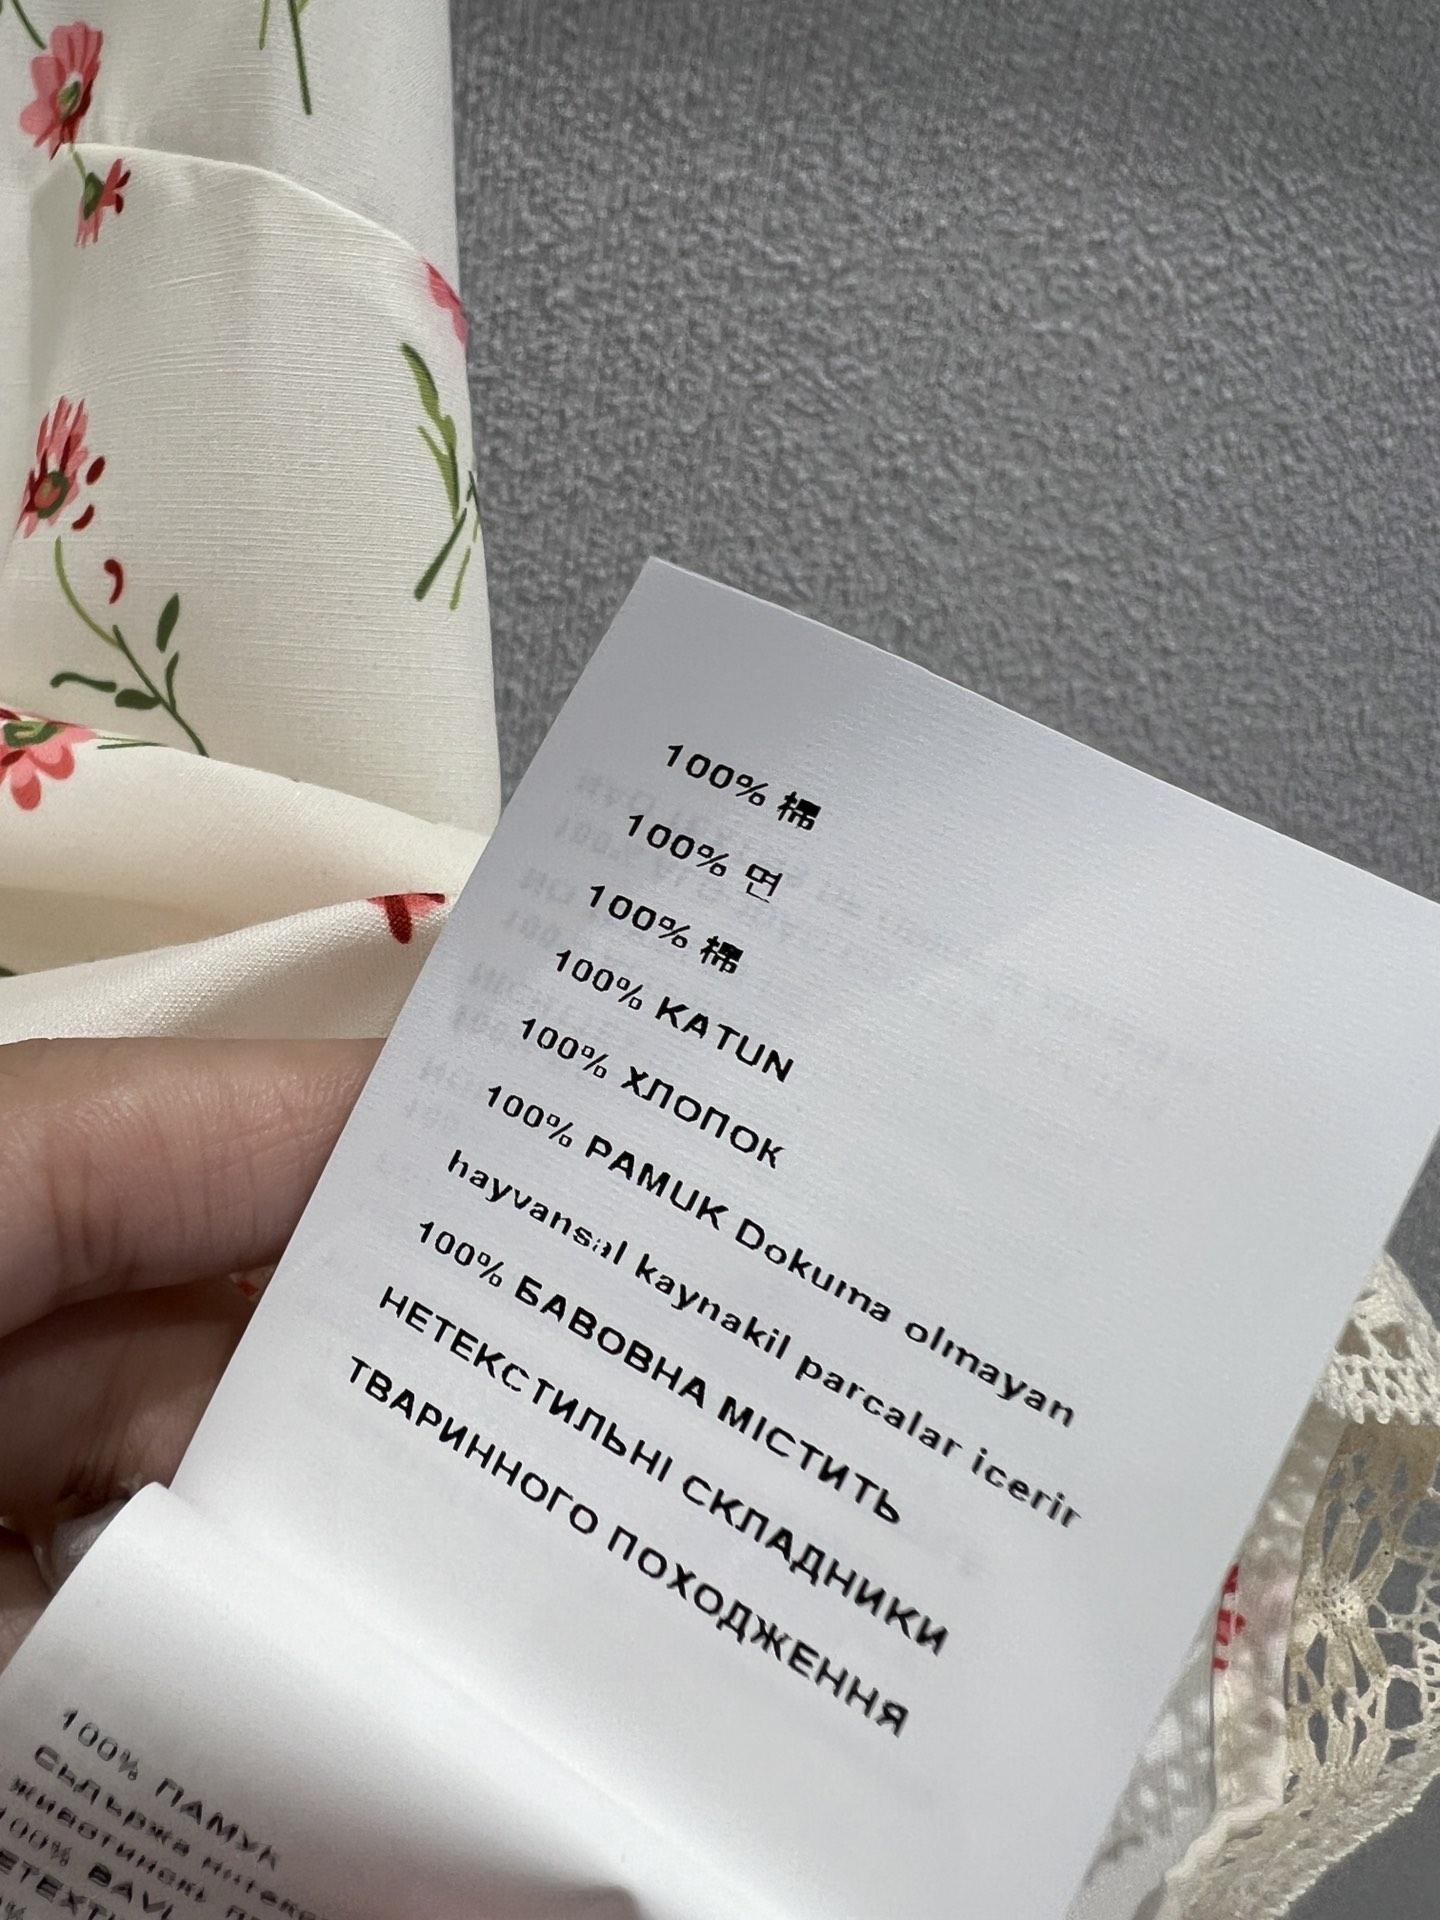 100% 棉
100% 면
100% 棉
100% KATUN
100% ХЛОПОК
100% PAMUK Dokuma olmayan
hayvansal kaynakil parcalar icerir
100% БАВОВНА МІСТИТЬ
НЕТЕКСТИЛЬНІ СКЛАДНИКИ
ТВАРИННОГО ПОХОДЖЕННЯ
100% ПАМУК
100%